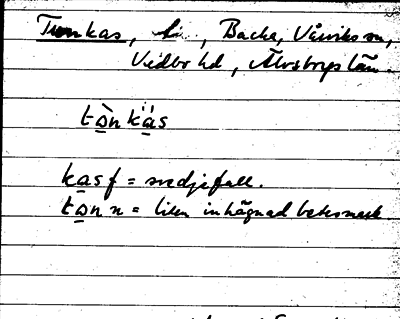 Tunkas, li, Backa, Vårviks sn,
Vedbo hd, Älvsborgs län.
tò̱nkä̱s
ka̱s f = svedjefall.
to̱n n = liten inhägnad betesmark